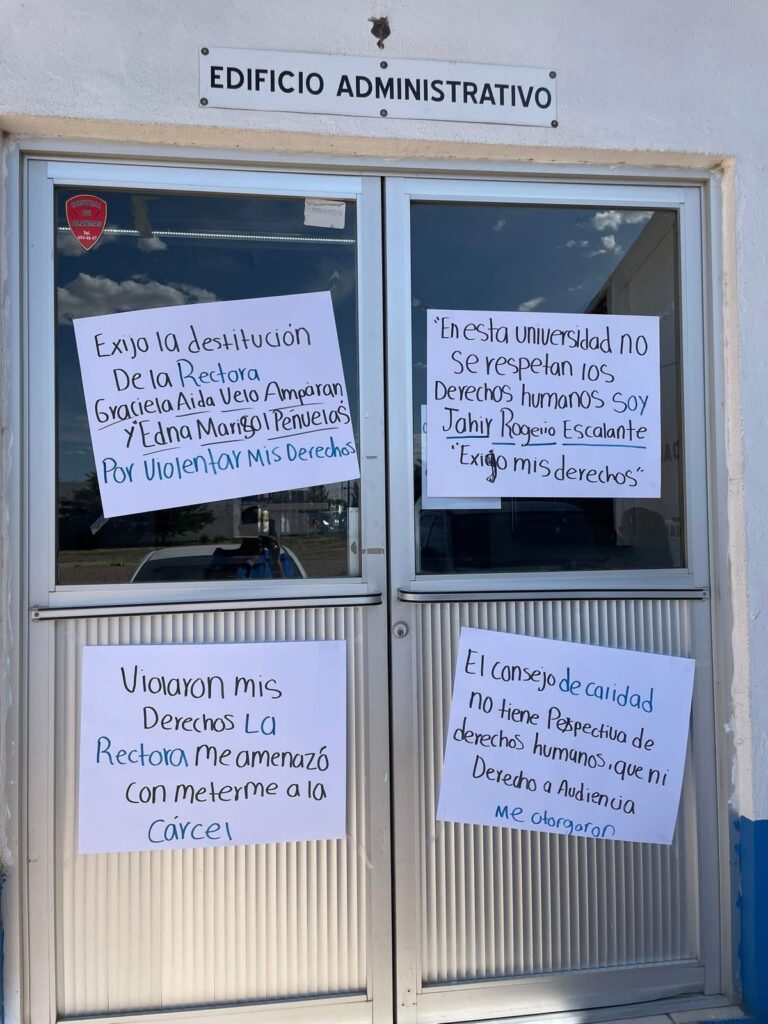 EDIFICIO ADMINISTRATIVO
CENTRAL
DE
ALARMAS
Tel.
Exijo la destitución
De la Rectora
Graciela Aida Velo Amparan
y Edna Marisol Peñuelas
Por Violentar Mis Derechos
"En esta universidad no
Se respetan los
Derechos humanos soy
Jahir Rogerio Escalante
"Exijo mis derechos"
Violaron mis
Derechos La
Rectora Me amenazó
Con meterme a la
Cárcel
El Consejo de calidad
no tiene Perspectiva de
derechos humanos, que ni
Derecho a Audiencia
Me otorgaron